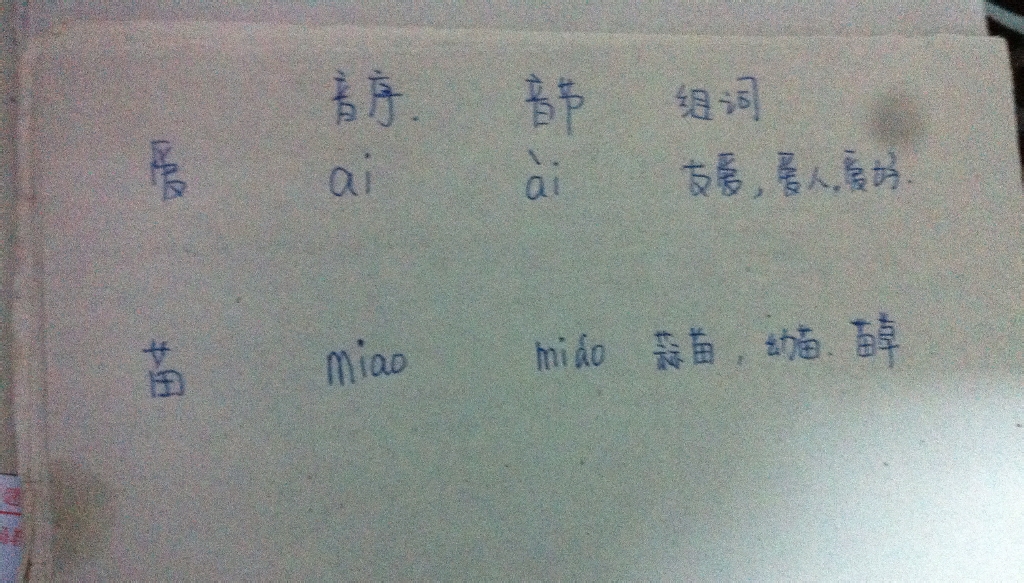 音序. 音节 组词
爱 ai ài 友爱,爱人.爱好.
苗 miao miáo 蒜苗,幼苗.苗草